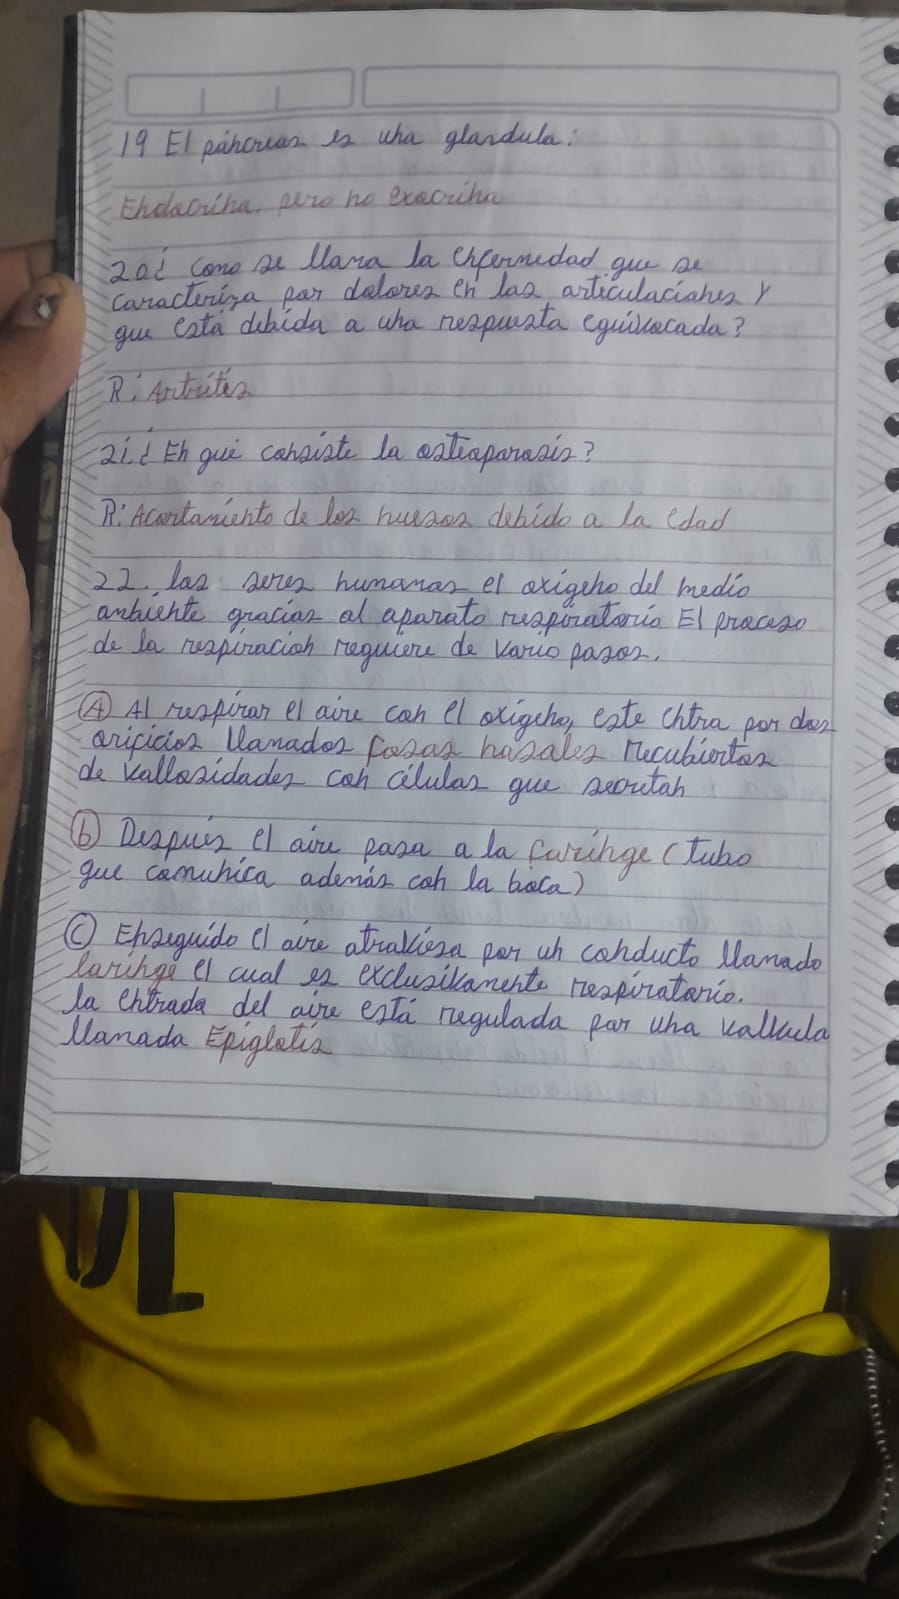 19 El páncreas es una glandula:
Endocrina, pero no exocrina
20¿ Como se llama la enfermedad que se
caracteriza por dolores en las articulaciones y
que está debida a una respuesta equivocada?
R: Artrites
21.¿ En qué consiste la osteoporosis?
R: Acortamiento de los huesos debido a la edad
22. las seres humanas el oxígeno del medio
ambiente gracias al aparato respiratorio El proceso
de la respiracion requiere de vario pasos.
Ⓐ Al respirar el aire con el oxígeno, este entra por dos
orificios llamados fosas nasales recubiertos
de vallosidades con células que secretan
ⓑ Después el aire pasa a la faringe (tubo
que comunica además con la boca)
Ⓒ Enseguido el aire atraviesa por un conducto llamado
laringe el cual es exclusivamente respiratorio.
la entrada del aire está regulada por una valvula
llamada Epiglotis